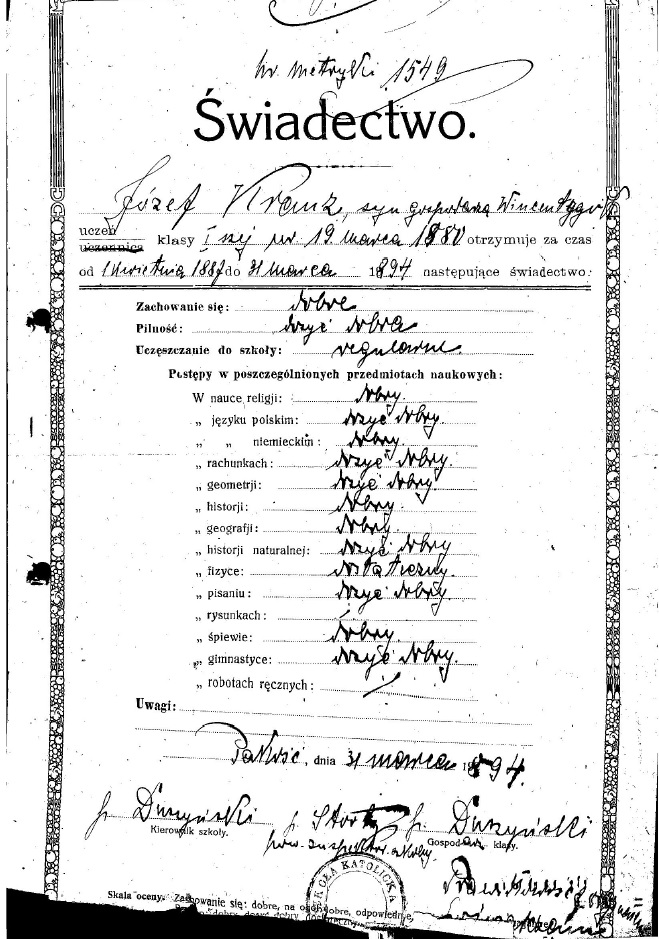 nr. metryki 1549
Świadectwo.
Józef Kranz, syn gospodarza Wincentego
uczeń
uczennica klasy I szej ur 19. marca 1880 otrzymuje za czas
od 1 kwietnia 1887 do 31 marca 1894 następujące świadectwo:
Zachowanie się: dobre
Pilność: dosyć dobra
Uczęszczanie do szkoły: regularne
Postępy w poszczególnionych przedmiotach naukowych:
W nauce religji: dobry.
„ języku polskim: dosyć dobry.
„ „ niemieckim: dobry.
„ rachunkach: dosyć dobry.
„ geometrji: dosyć dobry.
„ historji: dobry.
„ geografji: dobry.
„ historji naturalnej: dosyć dobry
„ fizyce: dostateczny.
„ pisaniu: dosyć dobry.
„ rysunkach:
„ śpiewie: dobry.
„ gimnastyce: dosyć dobry.
„ robotach ręcznych: /
Uwagi:
Pakość, dnia 31 marca 1894.
Duszyński
Kierownik szkoły.
Duszyński
Gospodarz klasy.
KATOLICKA
Skala oceny. Zachowanie się: dobre, na ogół dobre, odpowiednie,